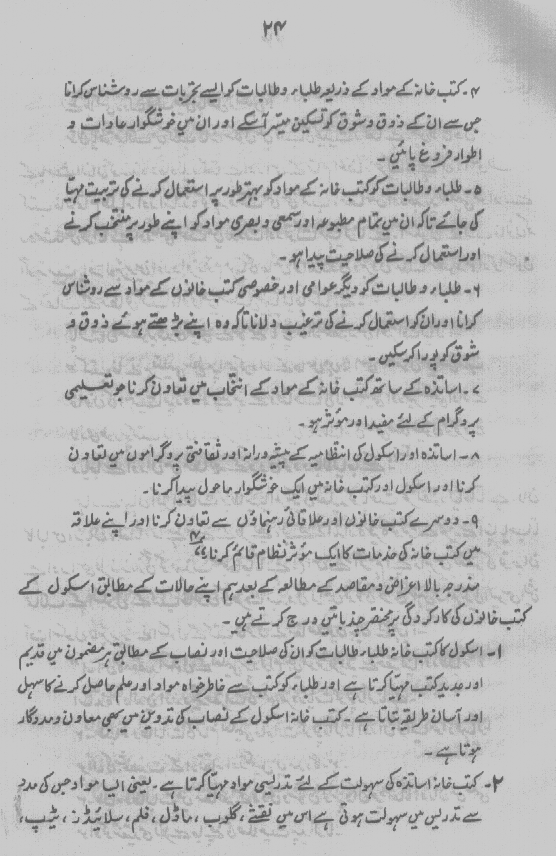 ۲۴
۴۔ کتب خانہ کے مواد کے ذریعہ طلباء و طالبات کو ایسے تجربات سے روشناس کرانا
جس سے ان کے ذوق و شوق کو تسکین میسر آسکے اور ان میں خوشگوار عادات و
اطوار فروغ پائیں۔
۵۔ طلباء و طالبات کو کتب خانہ کے مواد کو بہتر طور پر استعمال کرنے کی تربیت مہیا
کی جائے تاکہ ان میں تمام مطبوعہ اور سمعی و بصری مواد کو اپنے طور پر منتخب کرنے
اور استعمال کرنے کی صلاحیت پیدا ہو۔
۶۔ طلباء و طالبات کو دیگر عوامی اور خصوصی کتب خانوں کے مواد سے روشناس
کرانا اور ان کو استعمال کرنے کی ترغیب دلانا تاکہ وہ اپنے بڑھتے ہوئے ذوق و
شوق کو پورا کرسکیں۔
۷۔ اساتذہ کے ساتھ کتب خانہ کے مواد کے انتخاب میں تعاون کرنا جو تعلیمی
پروگرام کے لئے مفید اور موثر ہو۔
۸۔ اساتذہ اور اسکول کی انتظامیہ کے پیشہ ورانہ اور ثقافتی پروگراموں میں تعاون
کرنا اور اسکول اور کتب خانہ میں ایک خوشگوار ماحول پیدا کرنا۔
۹۔ دوسرے کتب خانوں اور علاقائی رہنماؤں سے تعاون کرنا اور اپنے علاقہ
میں کتب خانہ کی خدمات کا ایک موثر نظام قائم کرنا
مندرجہ بالا اغراض و مقاصد کے مطالعہ کے بعد ہم اپنے حالات کے مطابق اسکول کے
کتب خانوں کی کارکردگی پر مختصر چند باتیں درج کرتے ہیں۔
۱۔ اسکول کا کتب خانہ طلباء طالبات کو ان کی صلاحیت اور نصاب کے مطابق ہر مضمون میں قدیم
اور جدید کتب مہیا کرتا ہے اور طلباء کو کتب سے خاطر خواہ مواد اور علم حاصل کرنے کا سہل
اور آسان طریقہ بتاتا ہے۔ کتب خانہ اسکول کے نصاب کی تدوین میں بھی معاون و مددگار
ہوتا ہے۔
۲۔ کتب خانہ اساتذہ کی سہولت کے لئے تدریسی مواد مہیا کرتا ہے۔ یعنی ایسا مواد جس کی مدد
سے تدریس میں سہولت ہوتی ہے اس میں نقشے، گلوب، ماڈل، فلم، سلائیڈز، ٹیپ،